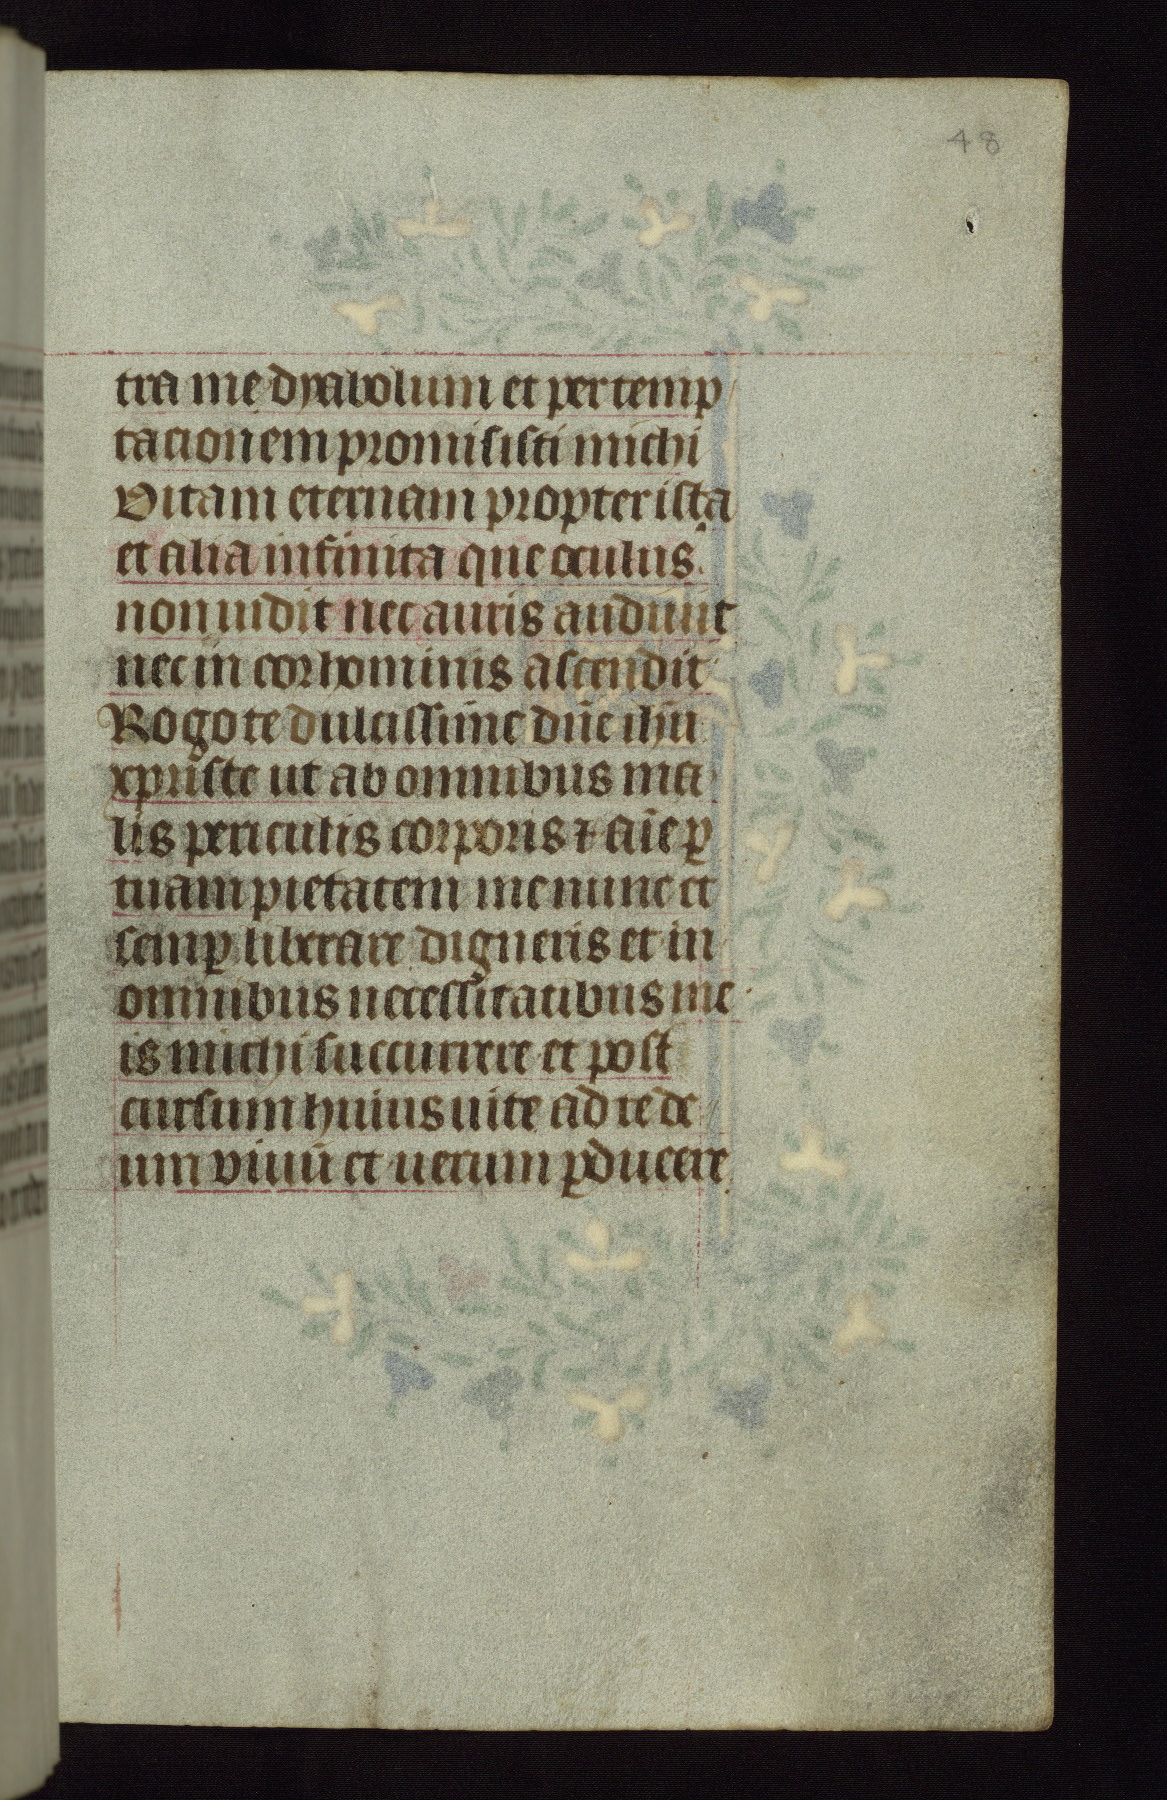 48
tra me dyabolum et per temp
tacionem promisisti michi
Vitam eternam propter ista
et alia infinita que oculus
non uidit nec auris audiuit
nec in cor hominis ascendit
Rogo te dulcissime dn̄e ihū
xpriste ut ab omnibus ma
lis periculis corporis ⁊ aīe ꝑ
tuam pietatem me nunc et
semꝑ liberare digneris et in
omnibus necessitatibus me
is michi succurrere et post
cursum huius uite ad te de
um viuū et uerum ꝑducere